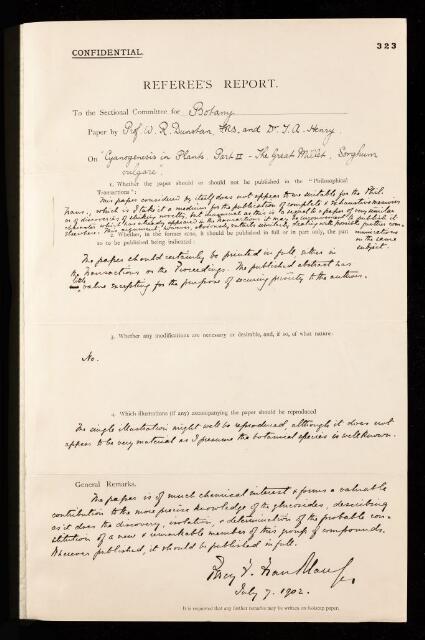 CONFIDENTIAL.
323
REFEREE'S REPORT.
To the Sectional Committee for Botany
Paper by Prof. W. R. Dunstan, FRS. and Dr. T. A. Henry.
On "Cyanogenesis in Plants. Part II - The Great Millet, Sorghum
vulgare.
1. Whether the paper should or should not be published in the "Philosophical
Transactions":
This paper considered by itself does not appear to me suitable for the Phil.
Trans., which is I take it a medium for the publication of complete & exhaustive memoirs
or discoveries of striking novelty, but inasmuch as this is a sequel to a paper of very similar
character which has already appeared in the Transactions it may be inconvenient to publish it
elsewhere. This argument, however, obviously entails similarly dealing with possible further com-
munications
on the same
subject.
2. Whether, in the former case, it should be published in full or in part only, the part
so to be published being indicated:
The paper should certainly be printed in full, either in
the Transactions or the Proceedings. The published abstract has
little value excepting for the purpose of securing priority to the authors.
3. Whether any modifications are necessary or desirable, and, if so, of what nature:
No.
4. Which illustrations (if any) accompanying the paper should be reproduced
The single illustration might well be reproduced, although it does not
appear to be very material as I presume the botanical species is well known.
General Remarks.
The paper is of much chemical interest & forms a valuable
contribution to the more precise knowledge of the glucosides, describing
as it does the discovery, isolation, & determination of the probable con-
stitution of a new & remarkable member of this group of compounds.
Wherever published, it should be published in full.
Percy F. Frankland.
July 7. 1902.
It is requested that any further remarks may be written on foolscap paper.